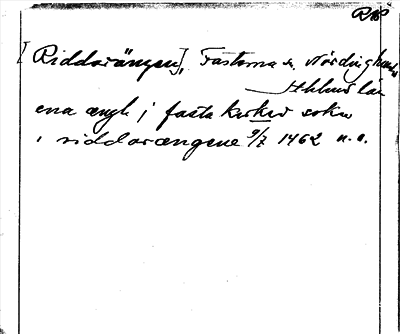 [Riddarängen], Fasterna sn, Närdinghundra
Sthlms län
ena ængh j fasta kirkio sokn
i riddarængene 9/7 1462 n. a.